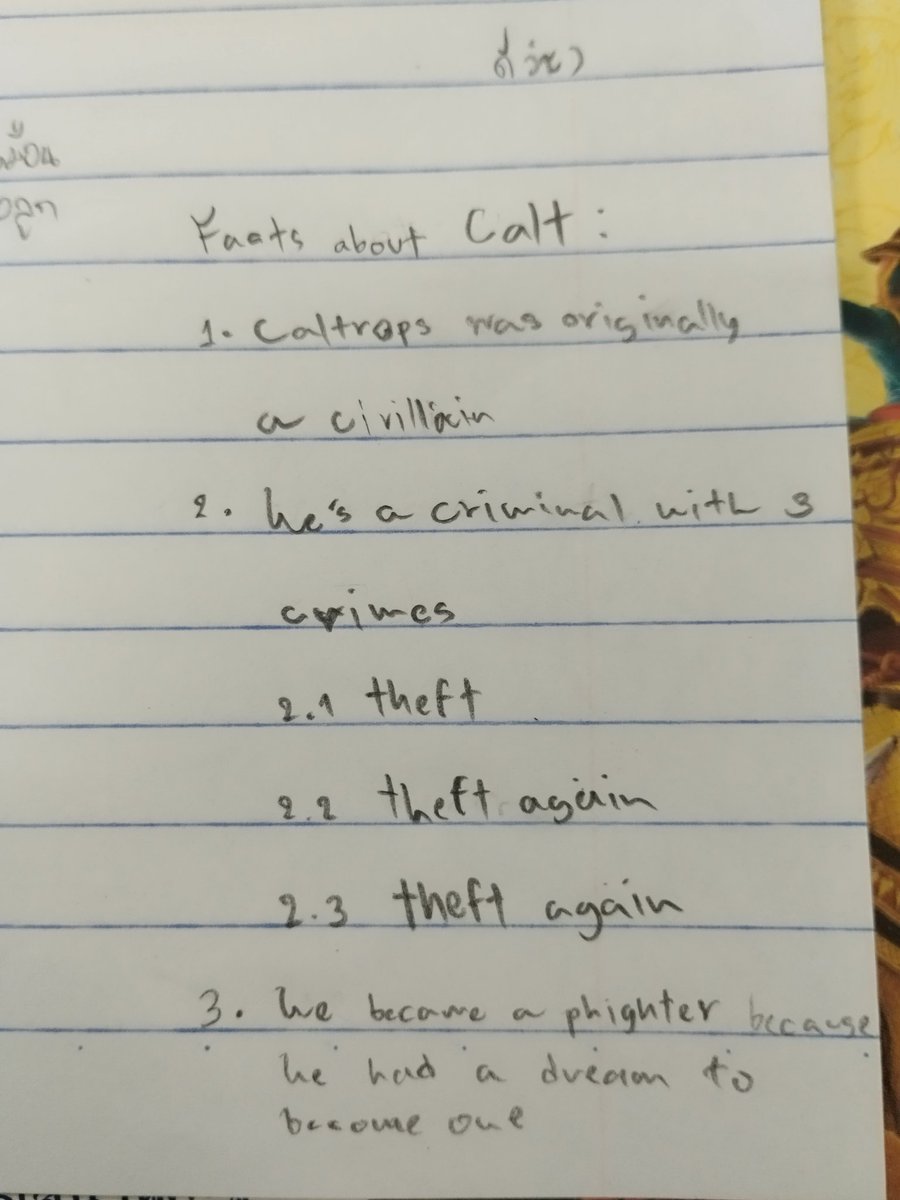 ดีว่า
Facts about Calt:
1. Caltrops was originally
a civillain
2. he's a criminal with 3
crimes
2.1 theft
2.2 theft again
2.3 theft again
3. he became a phighter because
he had a dream to
become one